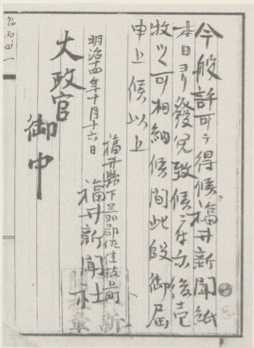 今般許可ヲ得候福井新聞紙
本日ヨリ發兌致候ニ付今後壱
枚ツヽ可相納候間此段御届
申上候以上
明治十四年十月十六日
福井縣下足羽郡佐佳枝上町
福井新聞社
太政官
御中